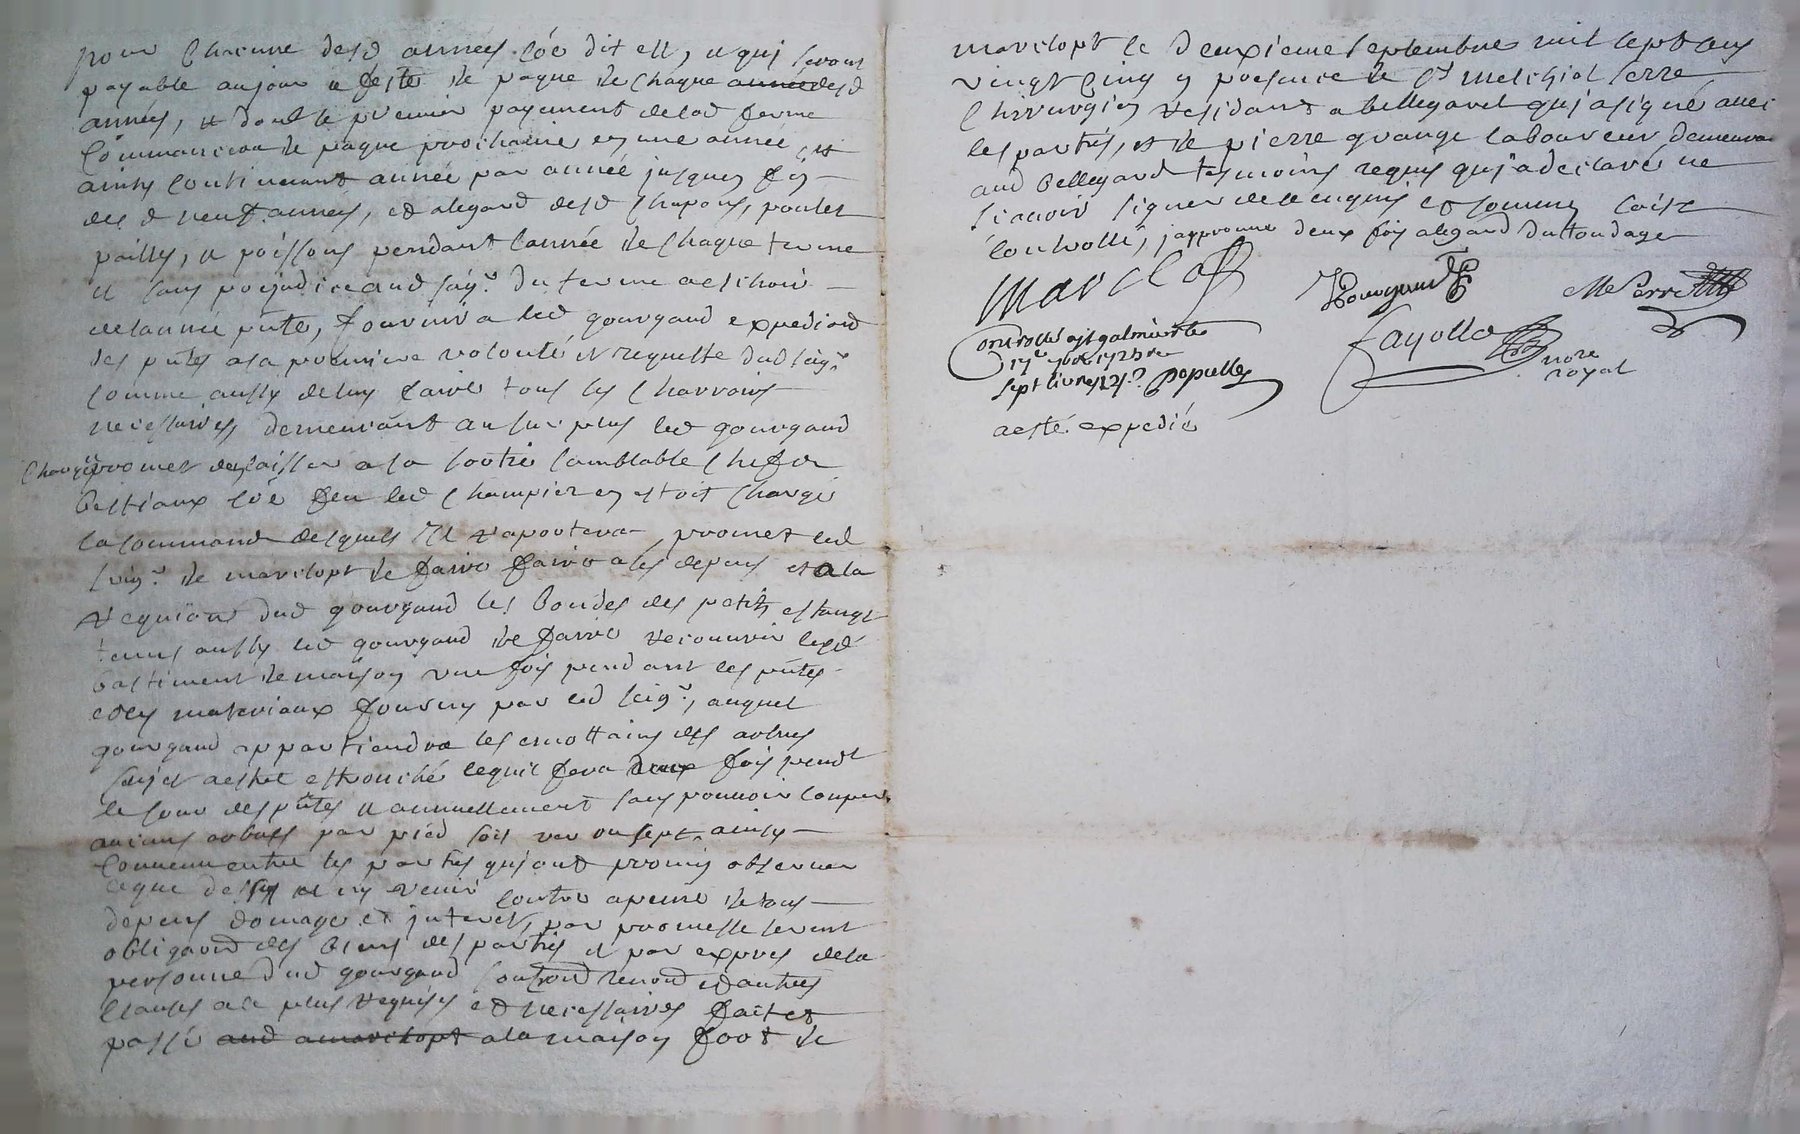 pour Chacune desd annees co[mm]e dit est, et qui seront
payable au jour et feste de paque de chaque année desd
années, et dont le premier payement de lad ferme
Commancera de paque prochaine en une année, et
ainsy Continuant année par année jusques fin
des d neuf années, et alegard desd Chapons, poulet
pailly, et poissons pendant lannée de Chaque terme
et sans prejudice aud seigr du terme a eschoir
de lannée pnte, fournir a led gourgaud expedion
des pntes a la premiere volonté et requeste dud seigr
Comme aussy de luy faire tous les Charrois
necessaires, demeurant au surplus led gourgaud
Chargé promet de laisser a sa sortie samblable Chefs de
bestiaux que feu led Champier en estoit Chargé
la commande desquels Il raportera, promet led
seigr de marclopt de faire faire a ses depens et a la
requion dud gourgaud les bondes des petits estangs
tenus aussy led gourgaud de faire recouvrir lesd
bastiment de maison une fois pendant les pntes
et les materiaux fournis par led seigr, auquel
gourgaud appartiendra les emottains des arbres
sujet a estre esbranché lequel fera deux fois pendt
le cour des pntes et annuellement sans pouvoir Couper
aucuns arbres par pied soit ver ou sept, ainsy
Convenu entre les parties qui ont promis observer
ceque dessus et ny venir Contre a peine de tous
depens domages et interet, par promesse serment
obligaon des biens des parties et par expres de la
personne dud gourgaud soubmon renond et autres
Clauses a ce plus requises et necessaires fait et
passé aud a marclopt a la maison fort de
marclopt le deuxieme septembre mil sept cens
vingt Cinq en presence de sr Melchiol serre
Chirurgien residant a bellegard qui a signé avec
les parties, et de pierre grange laboureur demeurant
aud bellegard tesmoins requis qui a declaré ne
scavoir signer de ce enquis et sommé soit
Controllé, japprouve deux fois alegard
Marclopt
Gourgaud
M Serre
Controllé a st galmier le
17e 7bre 1725 re
sept livres Popullé
Fayolle
nore
royal
a esté expedié